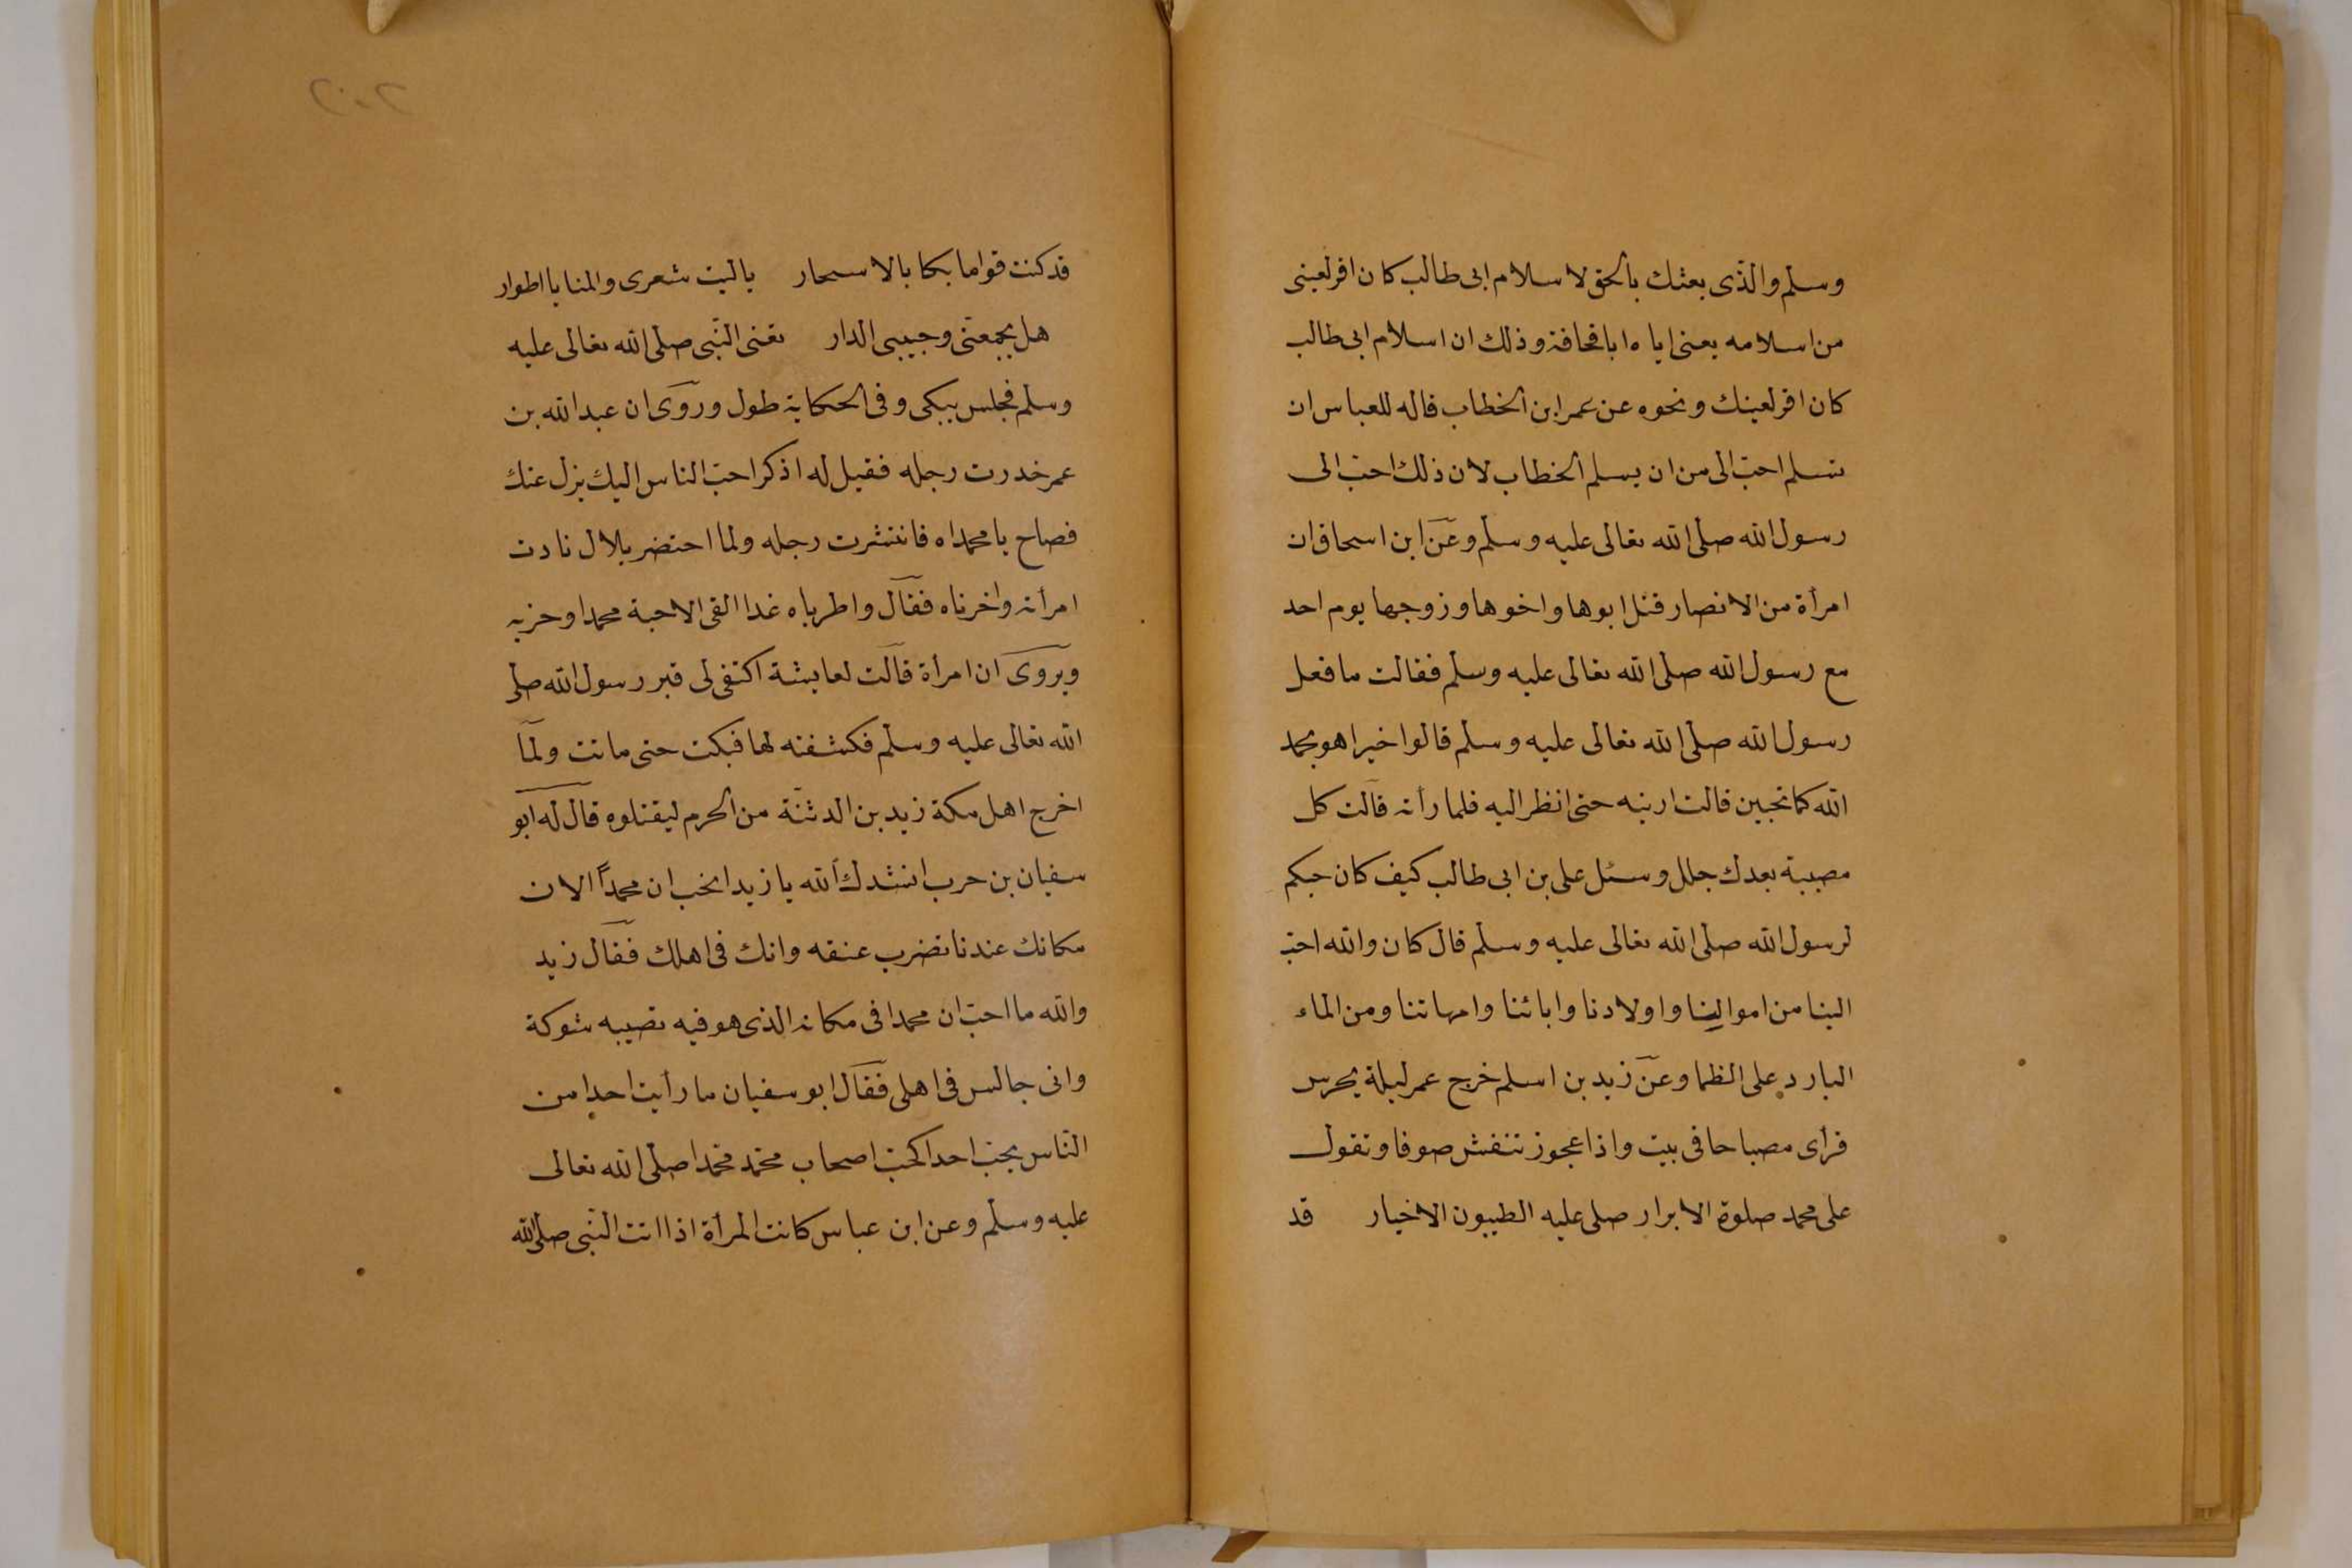 وسلم والذى بعثك بالحق لاسلام ابى طالب كان اقر لعينى
من اسلامه يعنى اياه ابا قحافة وذلك ان اسلام ابى طالب
كان اقر لعينك ونحوه عن عمر ابن الخطاب قاله للعباس ان
تسلم احبّ الى من ان يسلم الخطاب لان ذلك احبّ الى
رسول الله صلى الله تعالى عليه وسلم وعن ابن اسحاق ان
امرأة من الانصار قتل ابوها واخوها وزوجها يوم احد
مع رسول الله صلى الله تعالى عليه وسلم فقالت ما فعل
رسول الله صلى الله تعالى عليه وسلم قالوا خيرا هو بحمد
الله كما تحبين قالت ارنيه حتى انظر اليه فلما رأته قالت كل
مصيبة بعدك جلل وسئل على بن ابى طالب كيف كان حبكم
لرسول الله صلى الله تعالى عليه وسلم قال كان والله احبّ
الينا من اموالنا واولادنا وابائنا وامهاتنا ومن الماء
البارد على الظما وعن زيد بن اسلم خرج عمر ليلة يحرس
فرأى مصباحا فى بيت واذا عجوز تنفش صوفا وتقول
على محمد صلوة الابرار صلى عليه الطيبون الاخيار قد
٢٠٢
قد كنت قواما بكا بالاسحار ياليت شعرى والمنايا اطوار
هل يجمعنّى وحبيبى الدار تعنى النّبى صلى الله تعالى عليه
وسلم فجلس يبكى وفى الحكاية طول وروى ان عبد الله بن
عمر خدرت رجله فقيل له اذكر احبّ الناس اليك يزل عنك
فصاح يا محمداه فانتشرت رجله ولما احتضر بلال نادت
امرأته واحزناه فقال واطرباه غدا القى الاحبة محمدا وحزبه
ويروى ان امرأة قالت لعايشة اكشفى لى قبر رسول الله صلى
الله تعالى عليه وسلم فكشفته لها فبكت حتى ماتت ولما
اخرج اهل مكة زيد بن الدثنة من الحرم ليقتلوه قال له ابو
سفيان بن حرب انشدك الله يا زيد اتحب ان محمداً الان
مكانك عندنا تضرب عنقه وانك فى اهلك فقال زيد
والله ما احبّ ان محمدا فى مكانه الذى هو فيه تصيبه شوكة
وانى جالس فى اهلى فقال ابو سفيان ما رأيت احدا من
النّاس يحبّ احدا كحبّ اصحاب محمّد محمّدا صلى الله تعالى
عليه وسلم وعن ابن عباس كانت المرأة اذا اتت النّبى صلى الله